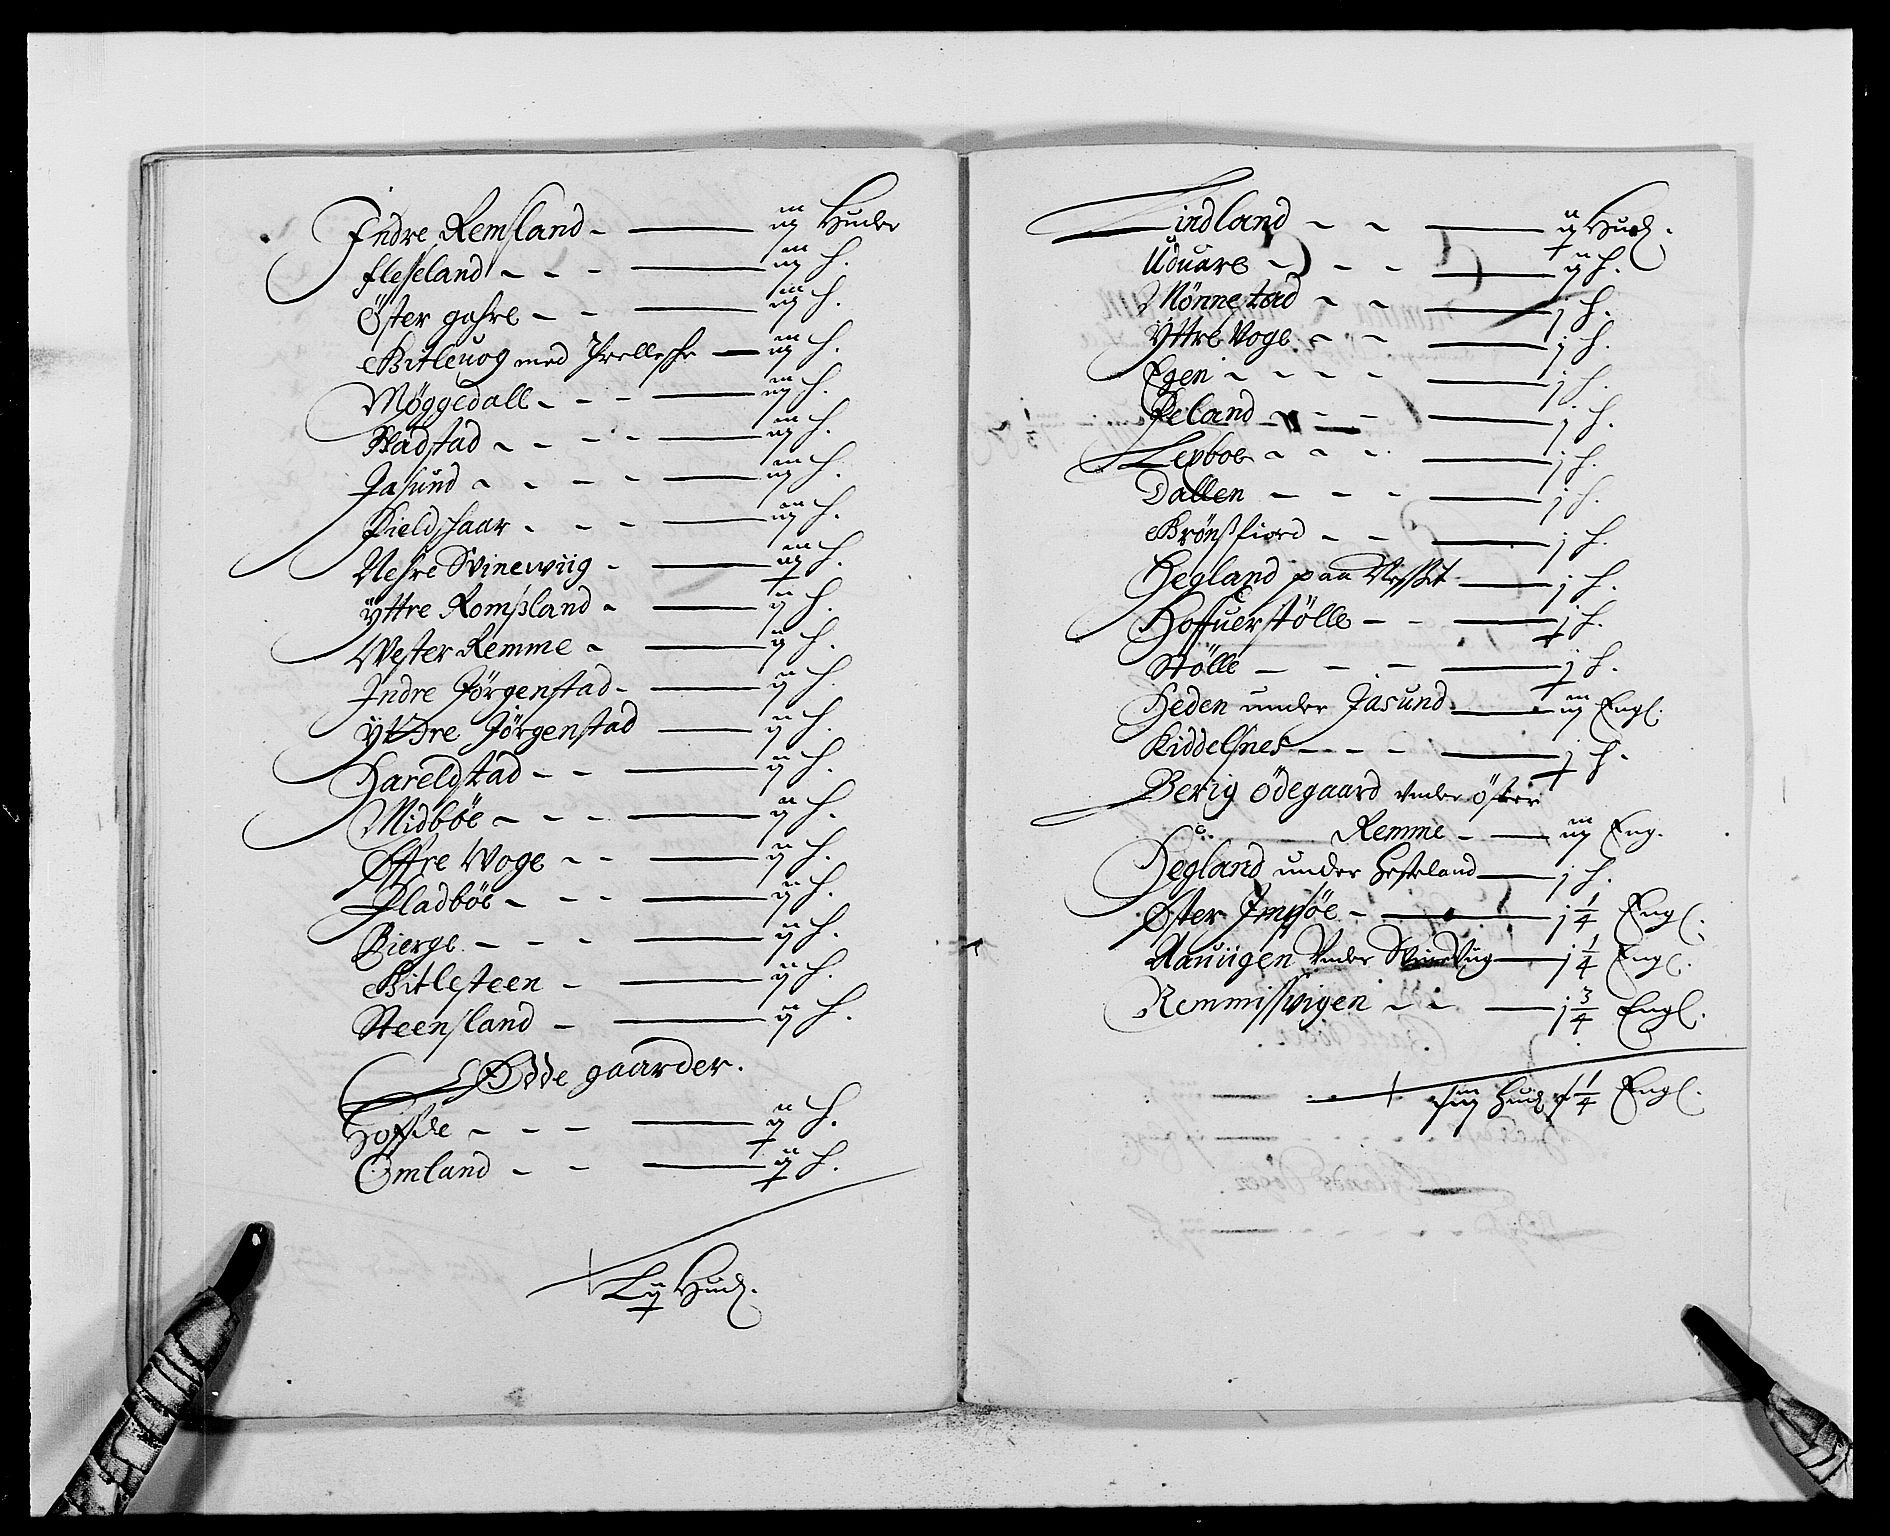 Indre Remsland - iij Huder
Fleseland - - - iij h.
Öster gahre - - iij h.
Bitleuog med iij h.
Möggedall - - - iij h.
Wadstad - - - - iij h.
Jasund - - - - - iij h.
Kieldshaar - - - iij h.
Nehre Svinewiig - iij h.
Yttre Rompsland - ij h.
Wester Remme - ij h.
Indre Jörgenstad - ij h.
Yttre Jörgenstad ij h.
Hareldstad - - ij h.
Midböe - - - - ij h.
Öffre Woge - - ij h.
Fladböe - - - ij h.
Bierge - - - ij h.
Bitlesteen - ij h.
Steensland - ij h.
Ödde gaarder.
ij h.
Omland - - ij h.
Lij Hud.
Lindland - - ij Hud.
Uduare - - - ij h.
Mönnestad - - j h.
Yttre Voge - - j h.
Egen - - - - j h.
Øeland - - - j h.
Lepboe - - - j h.
Dallen - - - j h.
Brönsfiord - - j h.
Hegland paa Nesset j h.
Hoffuerstölle - - j h.
Stölle - - - j h.
Heden under Jasund iij Engl.
Kiddelsnes - - - j h.
Berig ödegaard under öster
Remme - iij Eng.
Hegland under Hesteland j h.
Öster Impsöe - j 1/4 Engl.
Aauiigen Under j 1/4 Engl.
Remmisswigen - - j 3/4 Engl.
Hud 1/4 Engl.